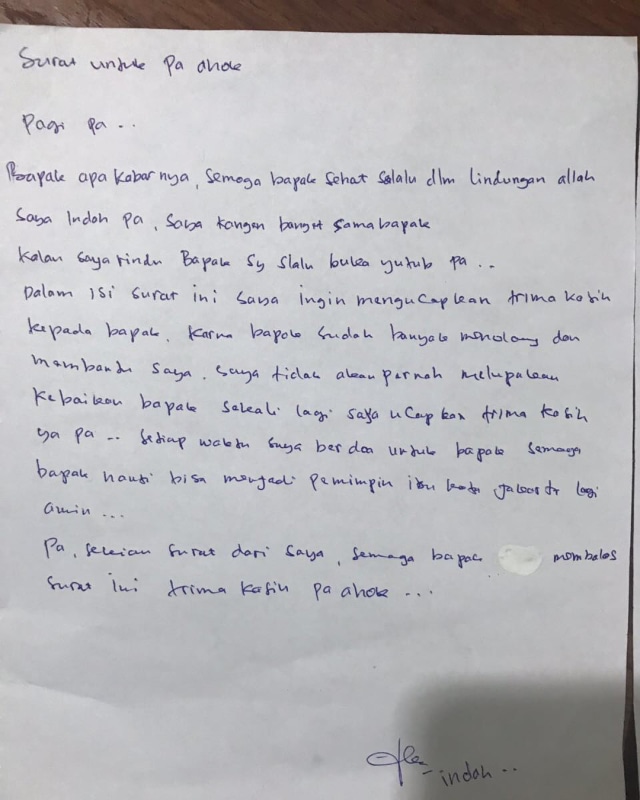 Surat untuk Pa ahok
Pagi pa ..
Bapak apa kabarnya, semoga bapak sehat selalu dlm lindungan allah
Saya Indah Pa, saya kangen banget sama bapak
Kalau saya rindu Bapak sy slalu buka yutub pa ..
Dalam isi surat ini saya ingin mengucapkan trima kasih
kepada bapak, karna bapak sudah banyak menolong dan
membantu saya, saya tidak akan pernah melupakan
kebaikan bapak sekali lagi saya ucapkan trima kasih
ya pa .. setiap waktu saya berdoa untuk bapak semoga
bapak nanti bisa menjadi pemimpin ibu kota jakarta lagi
amin ...
Pa, sekian surat dari saya, semoga bapak membalas
surat ini trima kasih pa ahok ...
indah ..